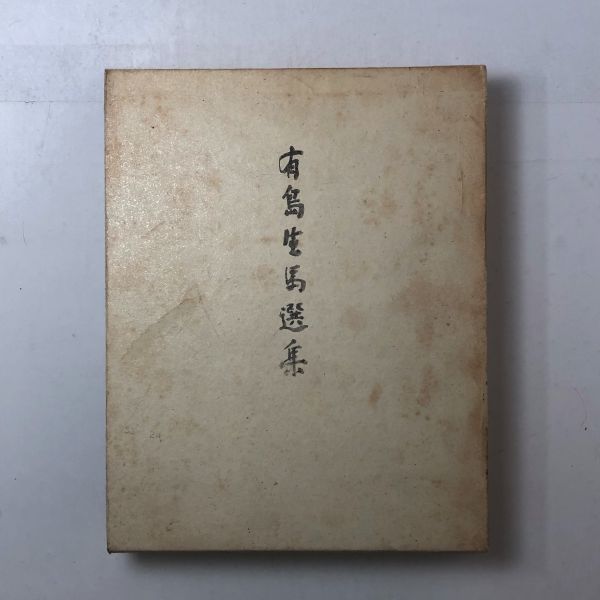 有島生馬選集